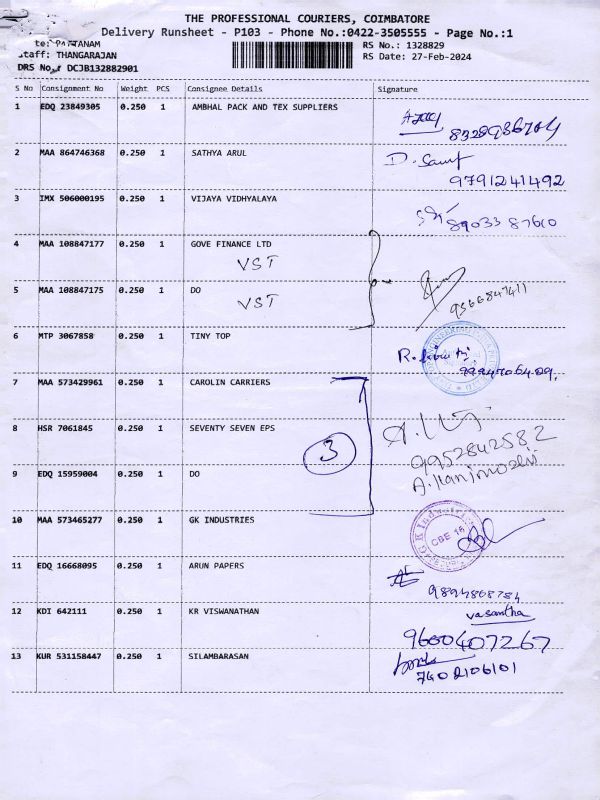 THE PROFESSIONAL COURIERS, COIMBATORE
Delivery Runsheet - P103 - Phone No.:0422-3505555 - Page No.:1
te: PATTANAM
RS No.: 1328829
Staff: THANGARAJAN
RS Date: 27-Feb-2024
DRS No.: DCJB132882901
S No Consignment No Weight PCS Consignee Details Signature
1 EDQ 23849305 0.250 1 AMBHAL PACK AND TEX SUPPLIERS
2 MAA 864746368 0.250 1 SATHYA ARUL
9791241492
3 IMX 506000195 0.250 1 VIJAYA VIDHYALAYA
89033 87610
4 MAA 108847177 0.250 1 GOVE FINANCE LTD
VST
5 MAA 108847175 0.250 1 DO
VST
9366847411
6 MTP 3067858 0.250 1 TINY TOP
7 MAA 573429961 0.250 1 CAROLIN CARRIERS
8 HSR 7061845 0.250 1 SEVENTY SEVEN EPS
3
9952842582
9 EDQ 15959004 0.250 1 DO
A.Kanimozhi
10 MAA 573465277 0.250 1 GK INDUSTRIES
G K Industries
CBE 16
11 EDQ 16668095 0.250 1 ARUN PAPERS
9894868784
12 KDI 642111 0.250 1 KR VISWANATHAN
vasantha
9600407267
13 KUR 531158447 0.250 1 SILAMBARASAN
7402106101